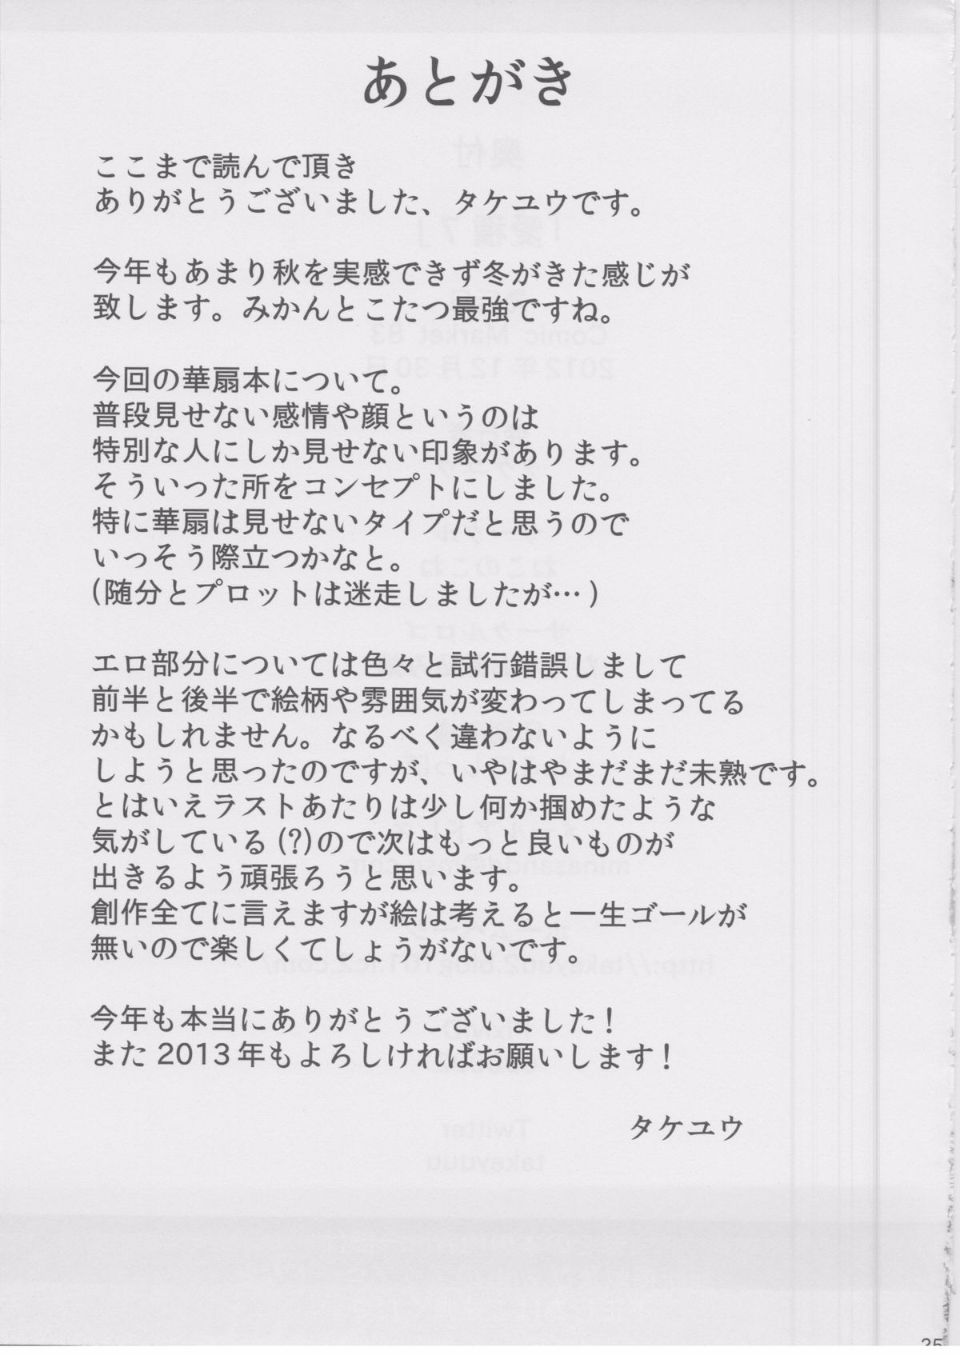 あとがき
ここまで読んで頂き
ありがとうございました、タケユウです。
今年もあまり秋を実感できず冬がきた感じが
致します。みかんとこたつ最強ですね。
今回の華扇本について。
普段見せない感情や顔というのは
特別な人にしか見せない印象があります。
そういった所をコンセプトにしました。
特に華扇は見せないタイプだと思うので
いっそう際立つかなと。
(随分とプロットは迷走しましたが…)
エロ部分については色々と試行錯誤しまして
前半と後半で絵柄や雰囲気が変わってしまってる
かもしれません。なるべく違わないように
しようと思ったのですが、いやはやまだまだ未熟です。
とはいえラストあたりは少し何か掴めたような
気がしている(?)ので次はもっと良いものが
出きるよう頑張ろうと思います。
創作全てに言えますが絵は考えると一生ゴールが
無いので楽しくてしょうがないです。
今年も本当にありがとうございました!
また2013年もよろしければお願いします!
タケユウ
25